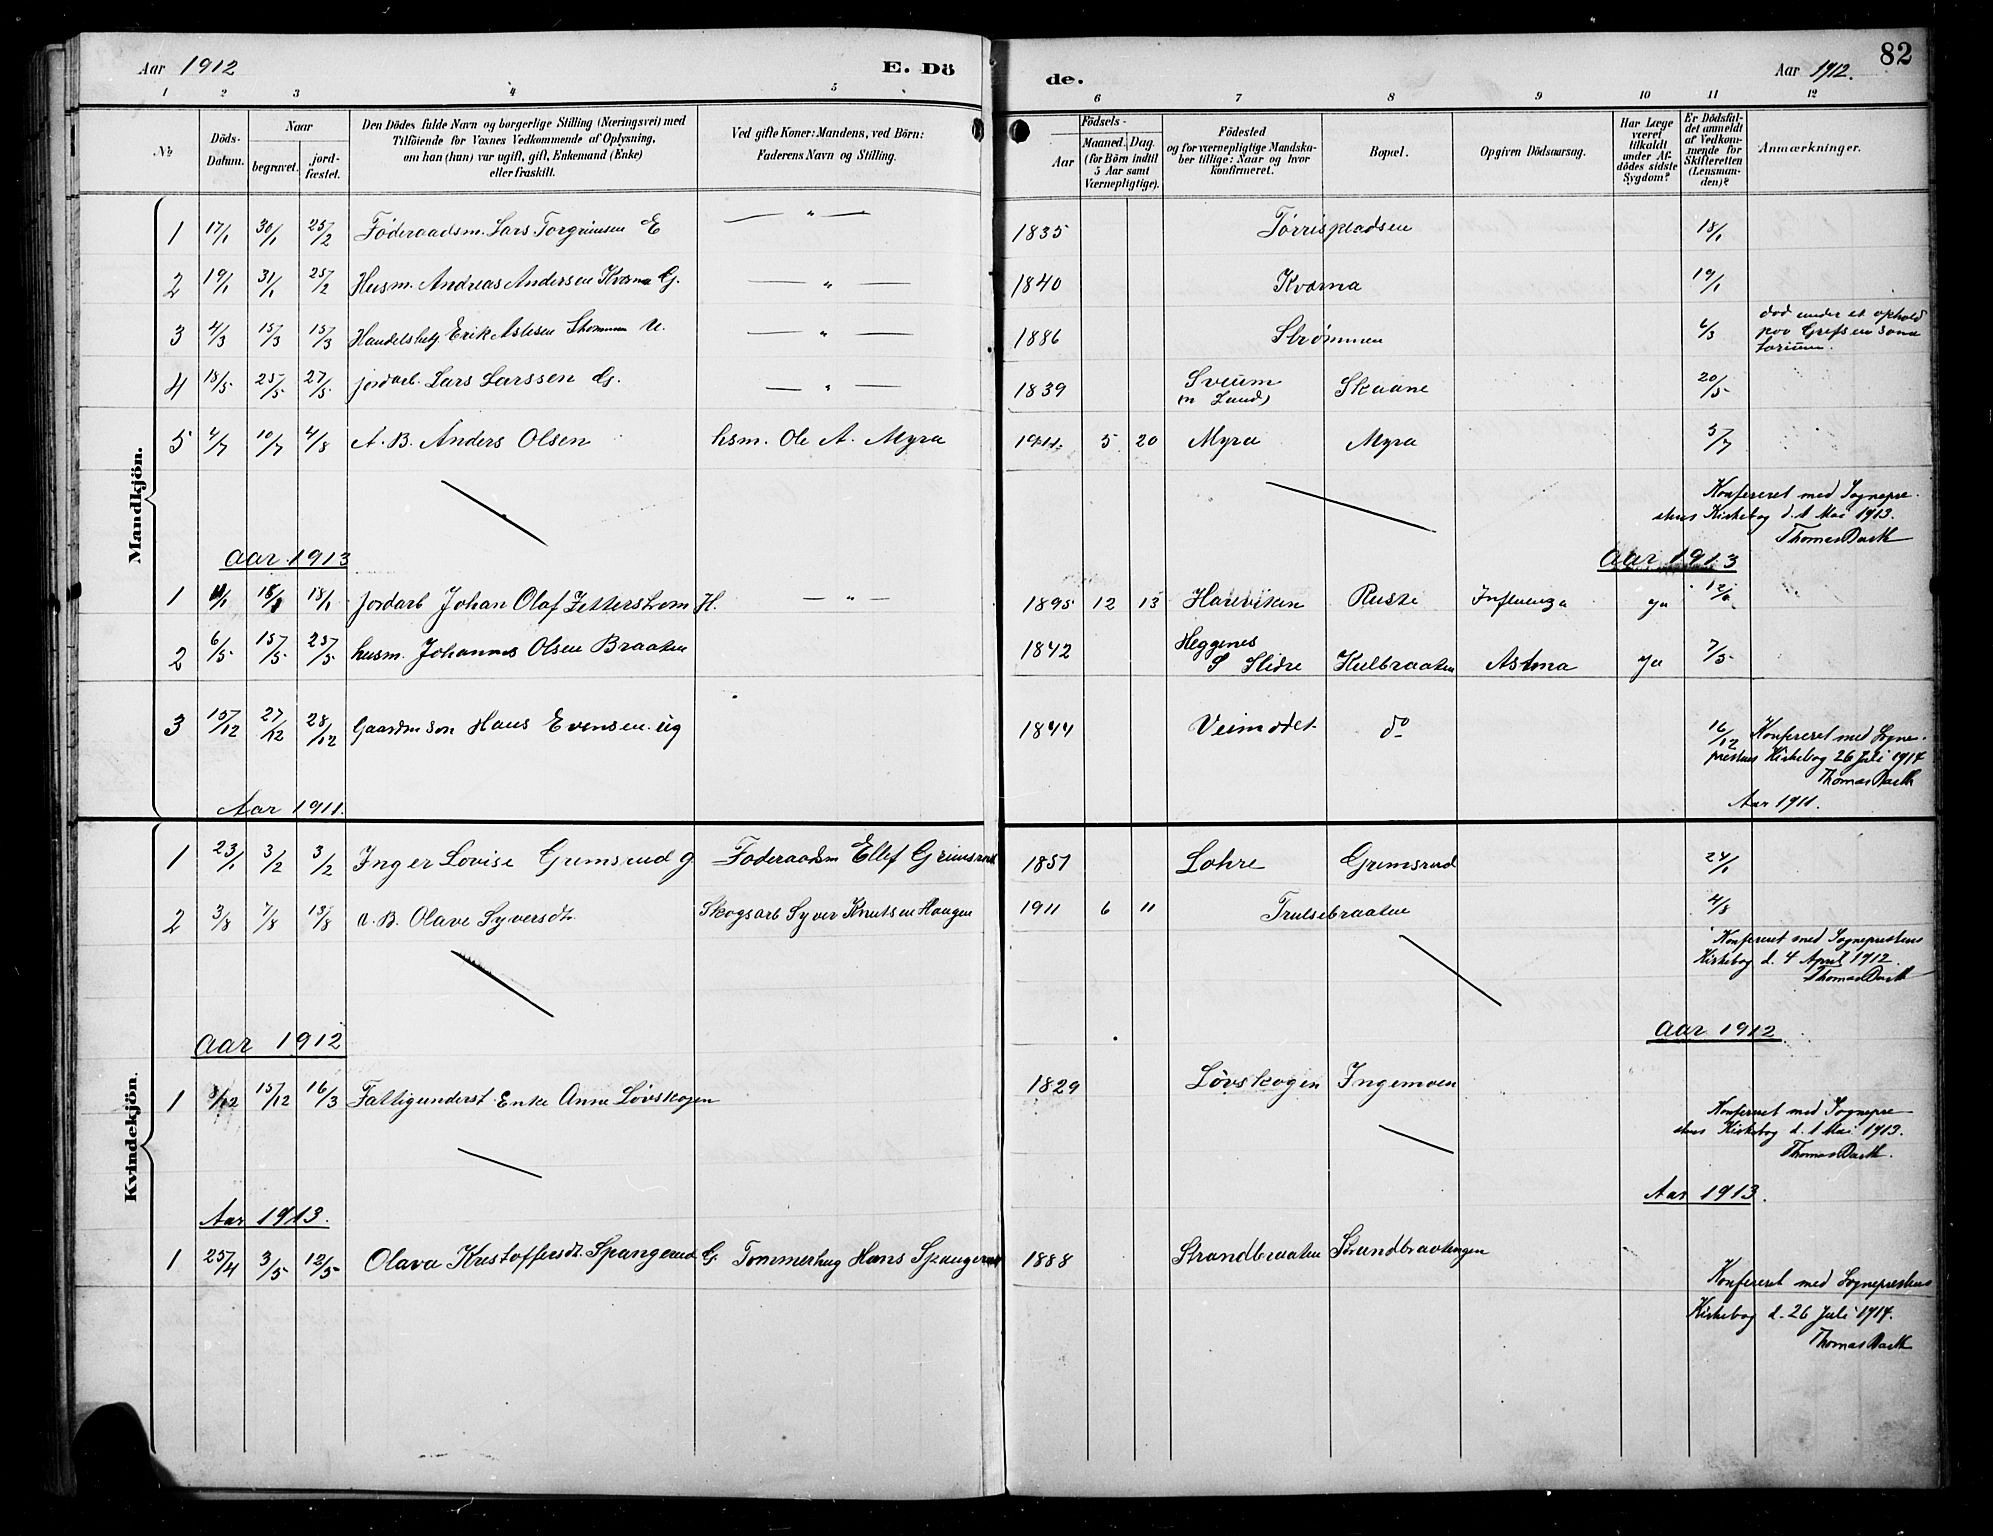 Aar 1912 E. Dö de. Aar 1912. 82
1 2 3 4 5 6 7 8 9 10 11 12
No Döds-Datum. Naar begravet. jord-fæstet. Den Dödes fulde Navn og borgerlige Stilling (Næringsvei) med Tilföiende for Voxnes Vedkommende af Oplysning, om han (hun) var ugift, gift, Enkemand (Enke) eller fraskilt. Ved gifte Koner: Mandens, ved Börn: Faderens Navn og Stilling. Födsels- Aar Maaned. Dag. (for Börn indtil 5 Aar samt Værnepligtige). Födested og for værnepligtige Mandskaber tillige: Naar og hvor konfirmeret. Bopæl. Opgiven Dödsaarsag. Har Læge været tilkaldt under Afdödes sidste Sygdom? Er Dödsfaldet anmeldt af Vedkommende for Skifteretten (Lensmanden)? Anmærkninger.
Mandkjön.
1 17/1 30/1 25/2 Föderaadsm. Lars Torgrimsen E — " — 1835 Tørrispladsen 18/1
2 19/1 31/1 25/2 Husm. Andreas Andersen Kværna G. — " — 1840 Kværna 19/1
3 4/3 15/3 15/3 Handelsbetj Erik Aslesen Strømmen U. — " — 1886 Strømmen 6/3 död under et ophold
paa Grefsen sana
torium.
4 18/5 25/5 27/5 jordarb. Lars Larssen G. — " — 1839 Sveum Skaane 20/5
(n Land)
5 4/7 10/7 4/8 A. B. Anders Olsen hsm. Ole A. Myra 1911 5 20 Myra Myra 5/7
Konfereret med Sognepre-
stens Kirkebog d. 1 Mai 1913.
Thomas Barth
Aar 1913 Aar 1913
1 11/1 18/1 18/1 Jordarb Johan Olaf Zetterstrom H. — " — 1895 12 13 Hareviken Ruste Influenza ja 12/1
2 6/5 15/5 25/5 husm. Johannes Olsen Braaten 1842 Heggenes
S Slidre Kulbraaten Astma ja 7/5
3 15/12 27/12 28/12 Gaardm søn Hans Evensen ug 1844 Veimødet do 16/12 Konfereret med Sogne-
prestens Kirkebog 26 Juli 1914
Thomas Barth
Aar 1911. Aar 1911.
Kvindekjön.
1 23/1 3/2 3/2 Inger Lovise Grimsrud g Föderaadsm Ellef Grimsrud 1851 Lohre Grimsrud 24/1
2 3/8 7/8 13/8 u. B. Olave Syversdt. Skogsarb Syver Knutsen Haugen 1911 6 11 Trulsebraaten 4/8
Konfereret med Sogneprestens
Kirkebog d. 4 April 1912.
Thomas Barth
Aar 1912 Aar 1912
1 3/12 15/12 16/3 Fattigunderst. Enke Anne Lövskogen 1829 Lövskogen Ingemoen
Konfereret med Sognepre-
stens Kirkebog d. 1 Mai 1913.
Thomas Barth.
Aar 1913. Aar 1913.
1 25/4 3/5 12/5 Olava Kristoffersdt. Spangerud G. Tømmerhug Hans Spangerud 1888 Strandbraaten Strandbraatengen
Konfereret med Sogneprestens
Kirkebog d. 26 Juli 1914.
Thomas Barth